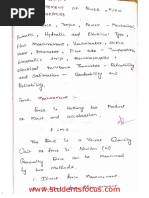 MEASUREMENT OF POWER, FLOW
Force, Torque, Power - Mechanical,
Pneumatic, Hydraulic and Electrical Type,
Flow Measurement, Venturimeter, Orifice
meter, Rotameter, Pitot tube - Temperature,
Bimetallic strip,
electrical resistance Thermometer - Reliability
and Calibration - Readability and
Reliability.
Force Measurement :-
Force is Nothing but Product
of Mass and acceleration.
F = ma
The Force is a Vector Quantity
Unit of force is Newton (N)
Generally Force can be measured
two methods.
Direct force Measurement
www.studentsfocus.com